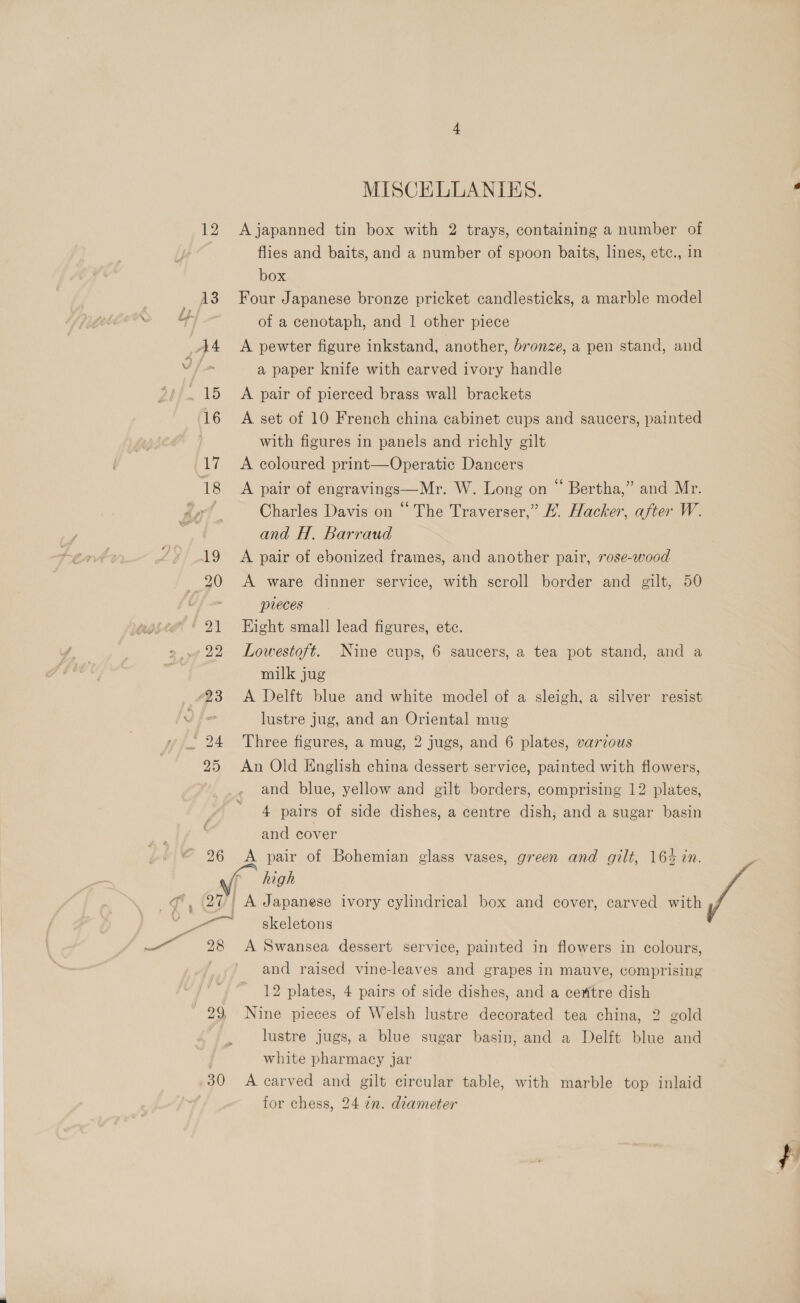 4
MISCELLANIES.
12 A japanned tin box with 2 trays, containing a number of
flies and baits, and a number of spoon baits, lines, etc., in
box
13 Four Japanese bronze pricket candlesticks, a marble model
of a cenotaph, and 1 other piece
14 A pewter figure inkstand, another, bronze, a pen stand, and
a paper knife with carved ivory handle
15 A pair of pierced brass wall brackets
16 A set of 10 French china cabinet cups and saucers, painted
with figures in panels and richly gilt
17 A coloured print—Operatic Dancers
18 A pair of engravings—Mr. W. Long on “Bertha,” and Mr.
Charles Davis on “The Traverser,” E. Hacker, after W.
and H. Barraud
19 A pair of ebonized frames, and another pair, rose-wood
20 A ware dinner service, with scroll border and gilt, 50
pieces
21 Eight small lead figures, etc.
22 Lowestoft. Nine cups, 6 saucers, a tea pot stand, and a
milk jug
23 A Delft blue and white model of a sleigh, a silver resist
lustre jug, and an Oriental mug
24 Three figures, a mug, 2 jugs, and 6 plates, various
25 An Old English china dessert service, painted with flowers,
and blue, yellow and gilt borders, comprising 12 plates,
4 pairs of side dishes, a centre dish, and a sugar basin
and cover
26 A pair of Bohemian glass vases, green and gilt, 16½ in.
high
27 A Japanese ivory cylindrical box and cover, carved with
skeletons
28 A Swansea dessert service, painted in flowers in colours,
and raised vine-leaves and grapes in mauve, comprising
12 plates, 4 pairs of side dishes, and a centre dish
29 Nine pieces of Welsh lustre decorated tea china, 2 gold
lustre jugs, a blue sugar basin, and a Delft blue and
white pharmacy jar
30 A carved and gilt circular table, with marble top inlaid
for chess, 24 in. diameter